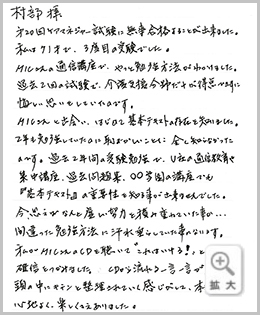 村部 様
第20回ケアマネジャー試験に無事合格することが出来ました。
私は71才で、3度目の受験でした。
HICさんの通信講座で、やっと勉強方法がわかりました。
過去2回の試験で、介護支援分野だけが得点できずに
悔しい思いをしていたのです。
HICさんと出会い、はじめて基本テキストの存在を知りました。
2年も勉強していたのに恥ずかしいことに全く知らなかった
のです。過去2年間の受験勉強で、U社の通信教育や
集中講座、過去問題集、〇〇学園の講座でも
『基本テキスト』の重要性を知る事が出来ませんでした。
今思うとなんと虚しい努力を積み重ねていた事か…
間違った勉強方法に汗水垂らしていた事なのです。
私がHICさんのCDを聴いて"これはいける!"と
確信をつかみました。CDから流れる一言一言が
頭の中にキチンと整理されていく感じがして、本
心地よく、楽しくてありました。
拡大